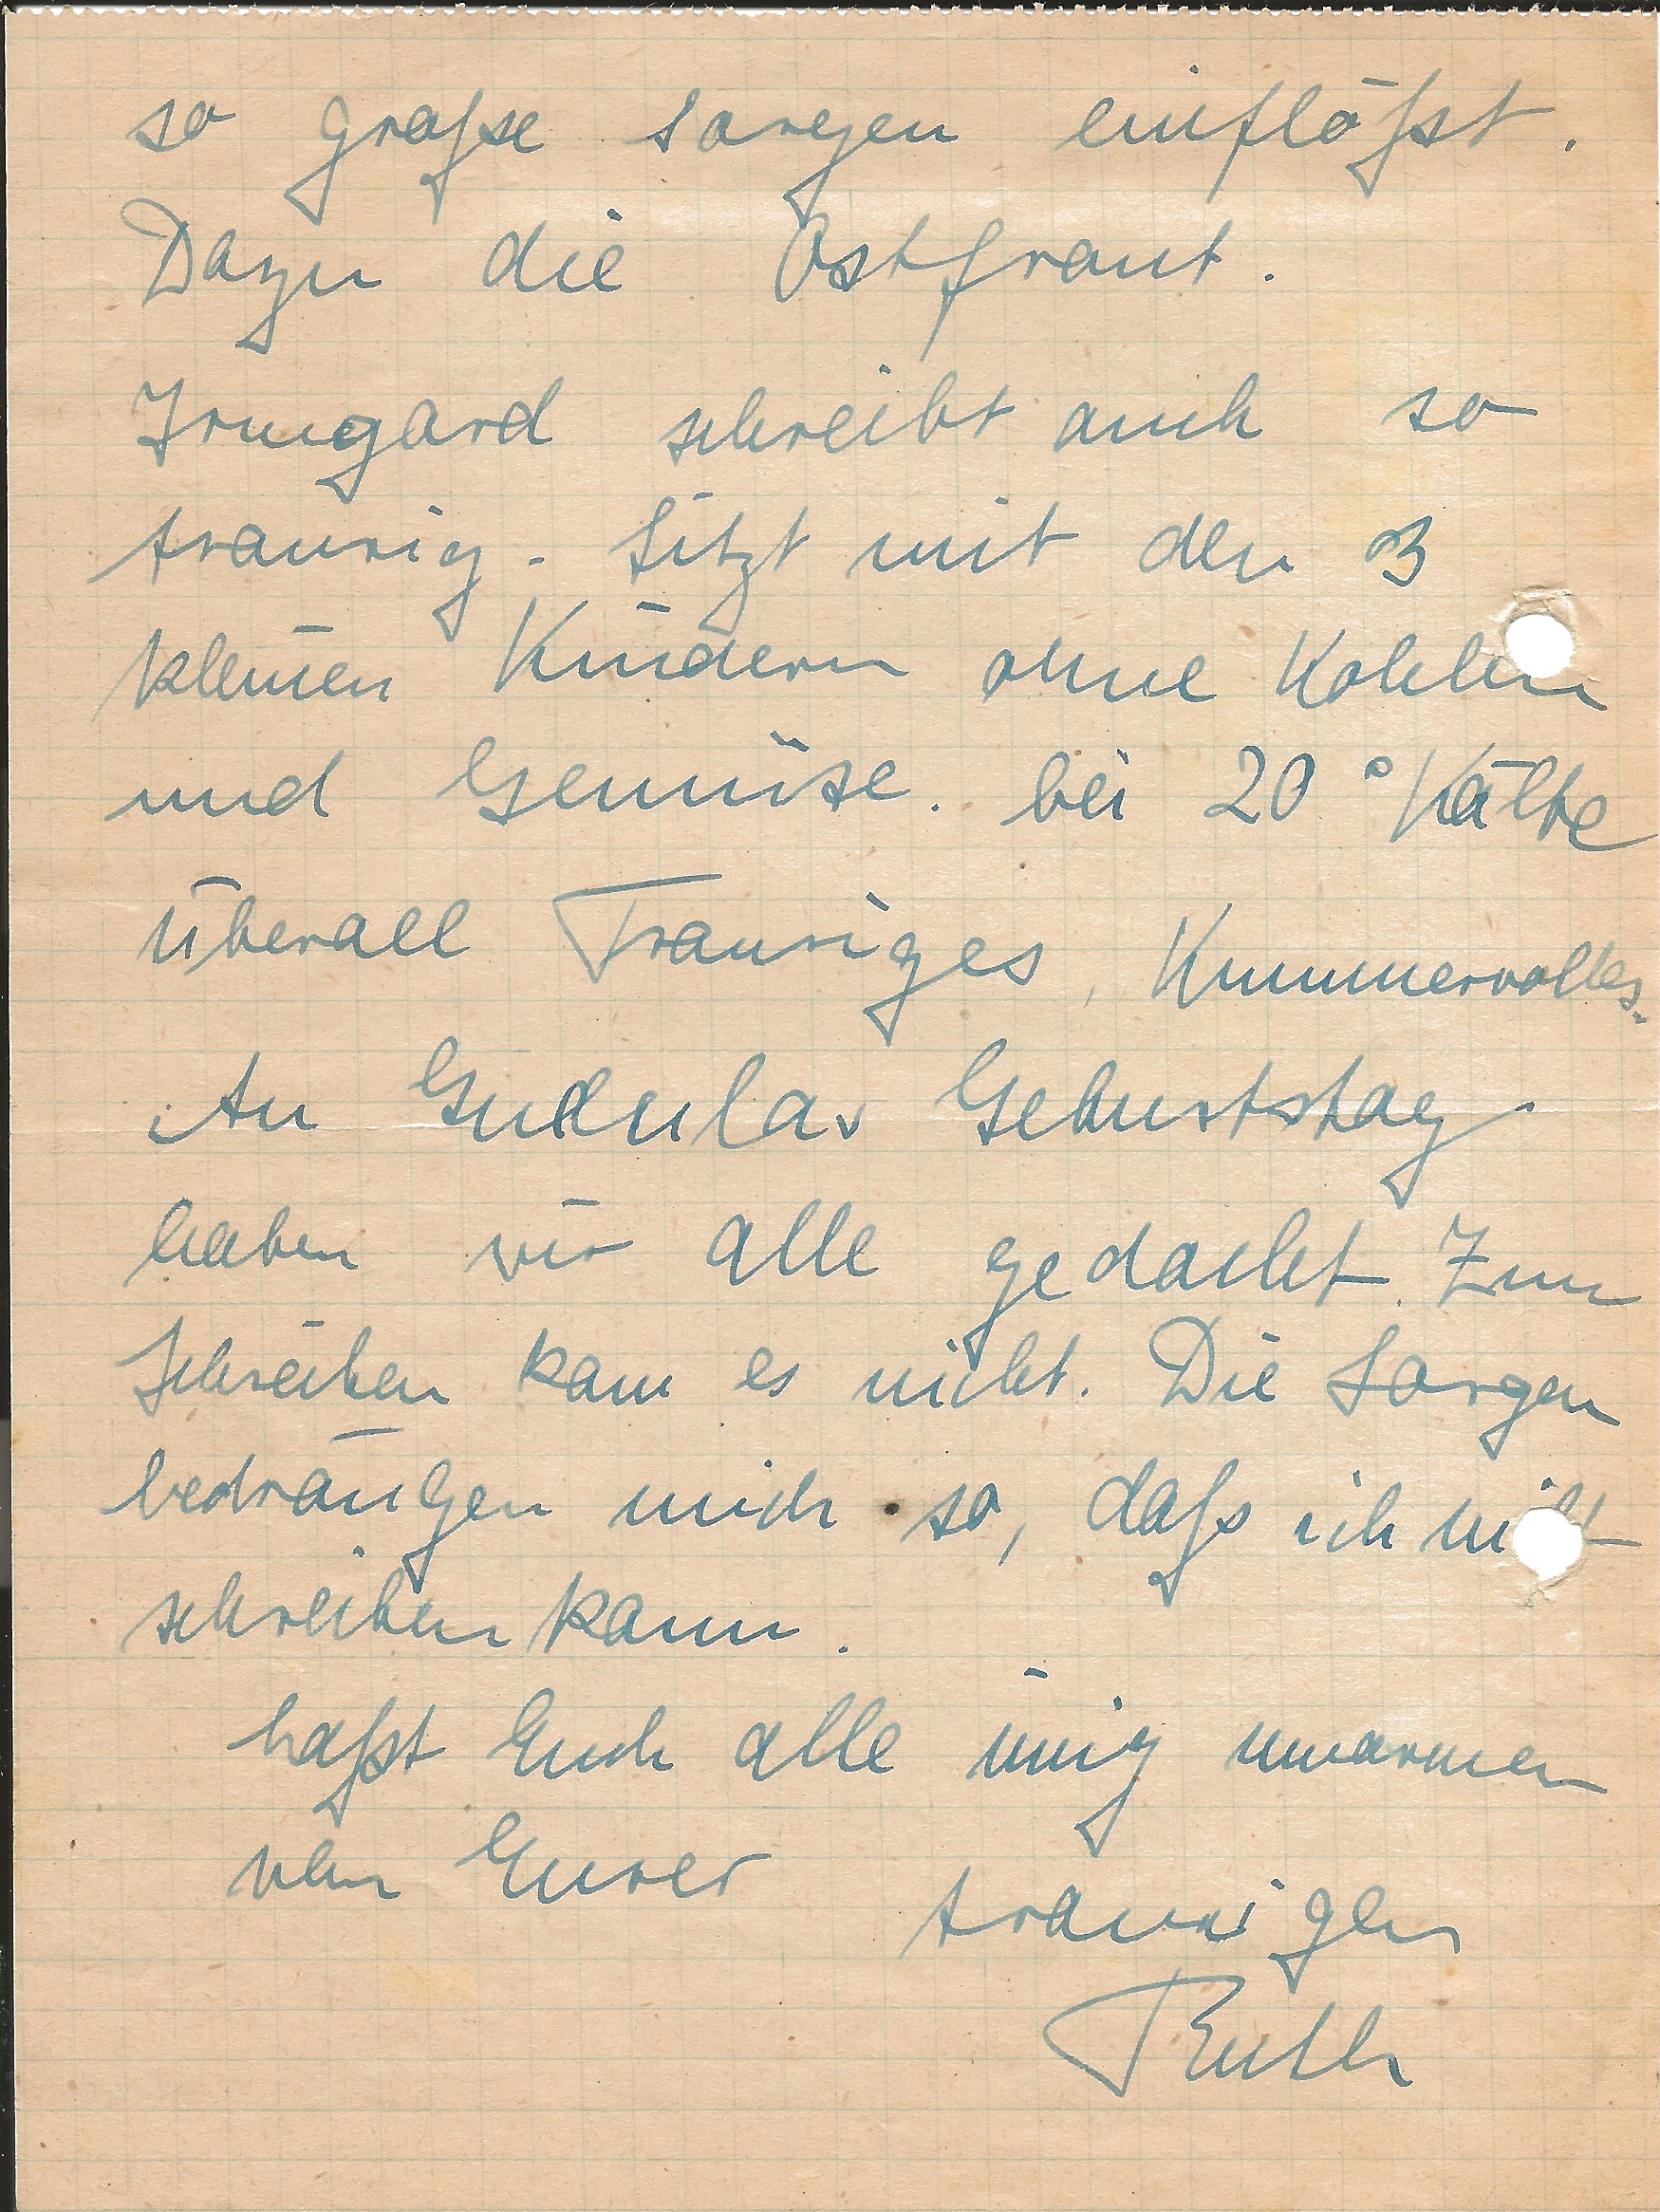 so große Sorgen einflößt.
Dazu die Ostfront.
Irmgard schreibt auch so
traurig. Sitzt mit den 3
kleinen Kindern ohne Kohlen
und Gemüse. bei 20° Kälte
Überall Trauriges, Kummervolles.
An Gudulas Geburtstag
haben wir alle gedacht. Zum
Schreiben kam es nicht. Die Sorgen
bedrängen mich so, daß ich nicht
schreiben kann.
Laßt Euch alle innig umarmen
von Eurer
traurigen
Ruth